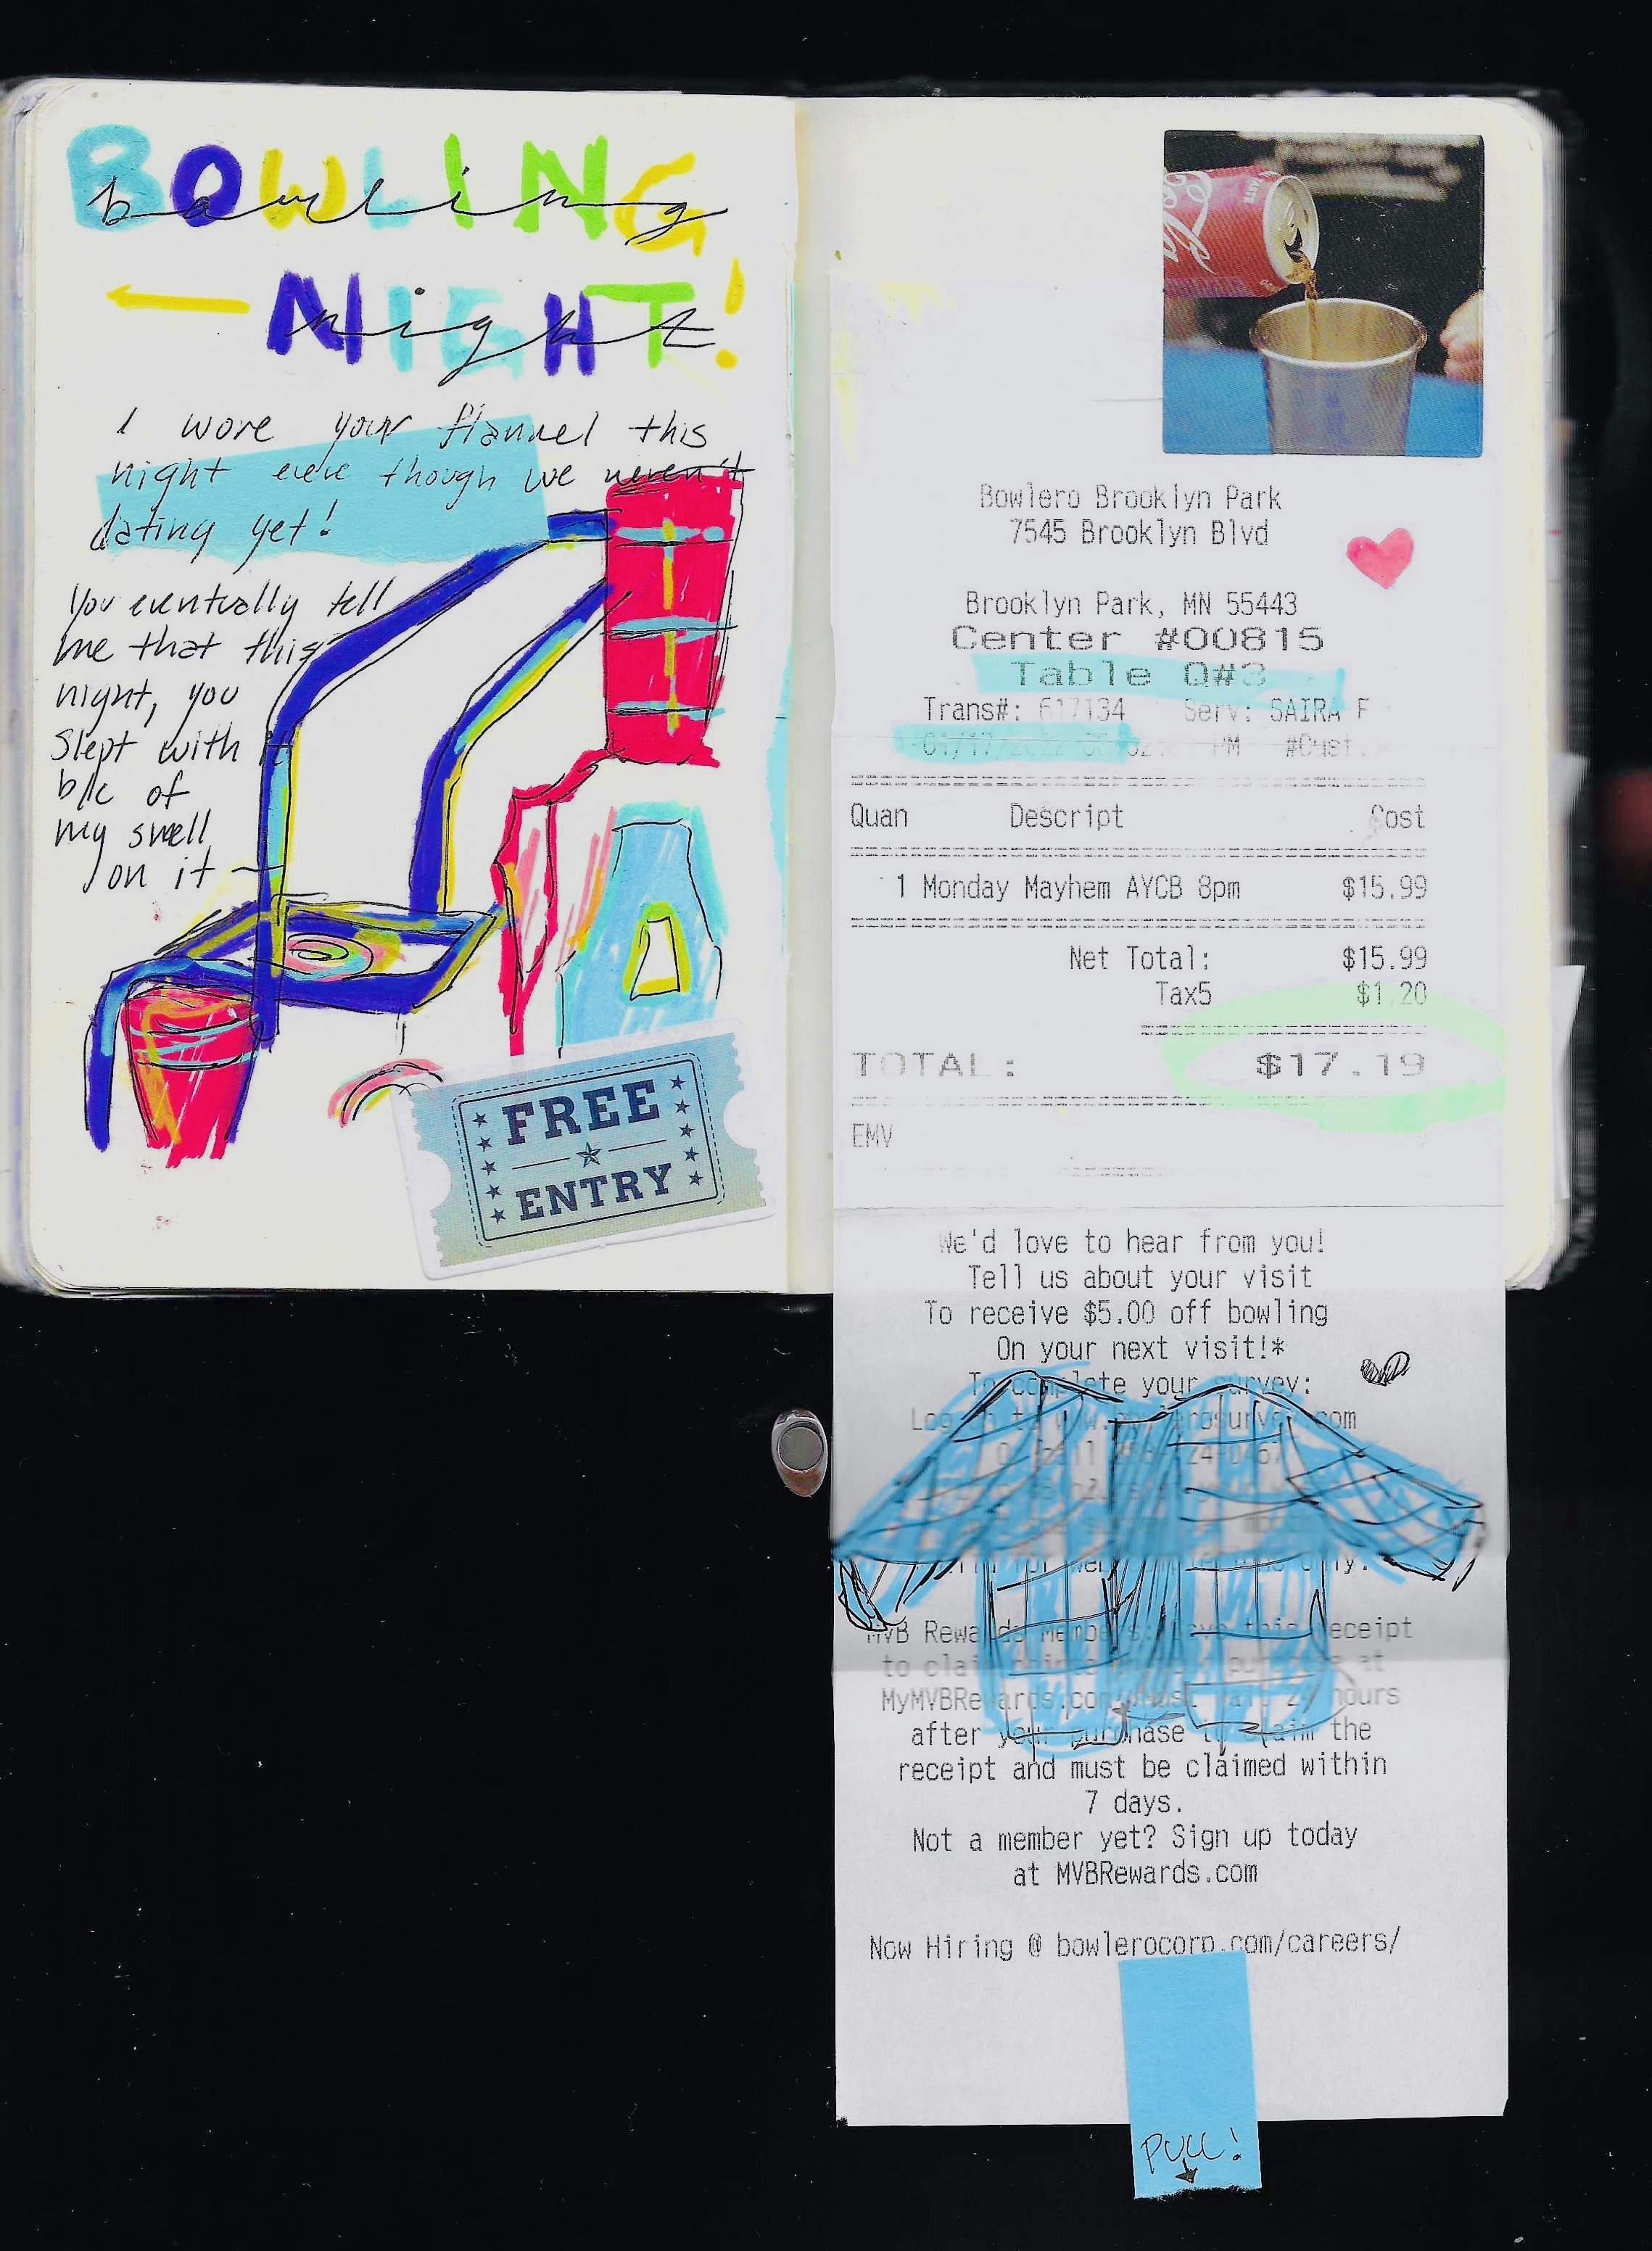 BOWLING
bowling
NIGHT!
night
I wore your flannel this
night even though we weren't
dating yet!
You eventually tell
me that this
night, you
slept with it
b/c of
my smell
on it
FREE
ENTRY
Bowlero Brooklyn Park
7545 Brooklyn Blvd
Brooklyn Park, MN 55443
Center #00815
Table Q#3
Trans#: 617134 Serv: SAIRA F
01/17/ PM #Cust.
Quan Descript Cost
1 Monday Mayhem AYCB 8pm $15.99
Net Total: $15.99
Tax5 $1.20
TOTAL: $17.19
EMV
We'd love to hear from you!
Tell us about your visit
To receive $5.00 off bowling
On your next visit!*
To complete your survey:
MVB Rewards Members: this receipt
to claim at
MyMVBRewards.com hours
after your purchase to claim the
receipt and must be claimed within
7 days.
Not a member yet? Sign up today
at MVBRewards.com
Now Hiring @ bowlerocorp.com/careers/
PULL!